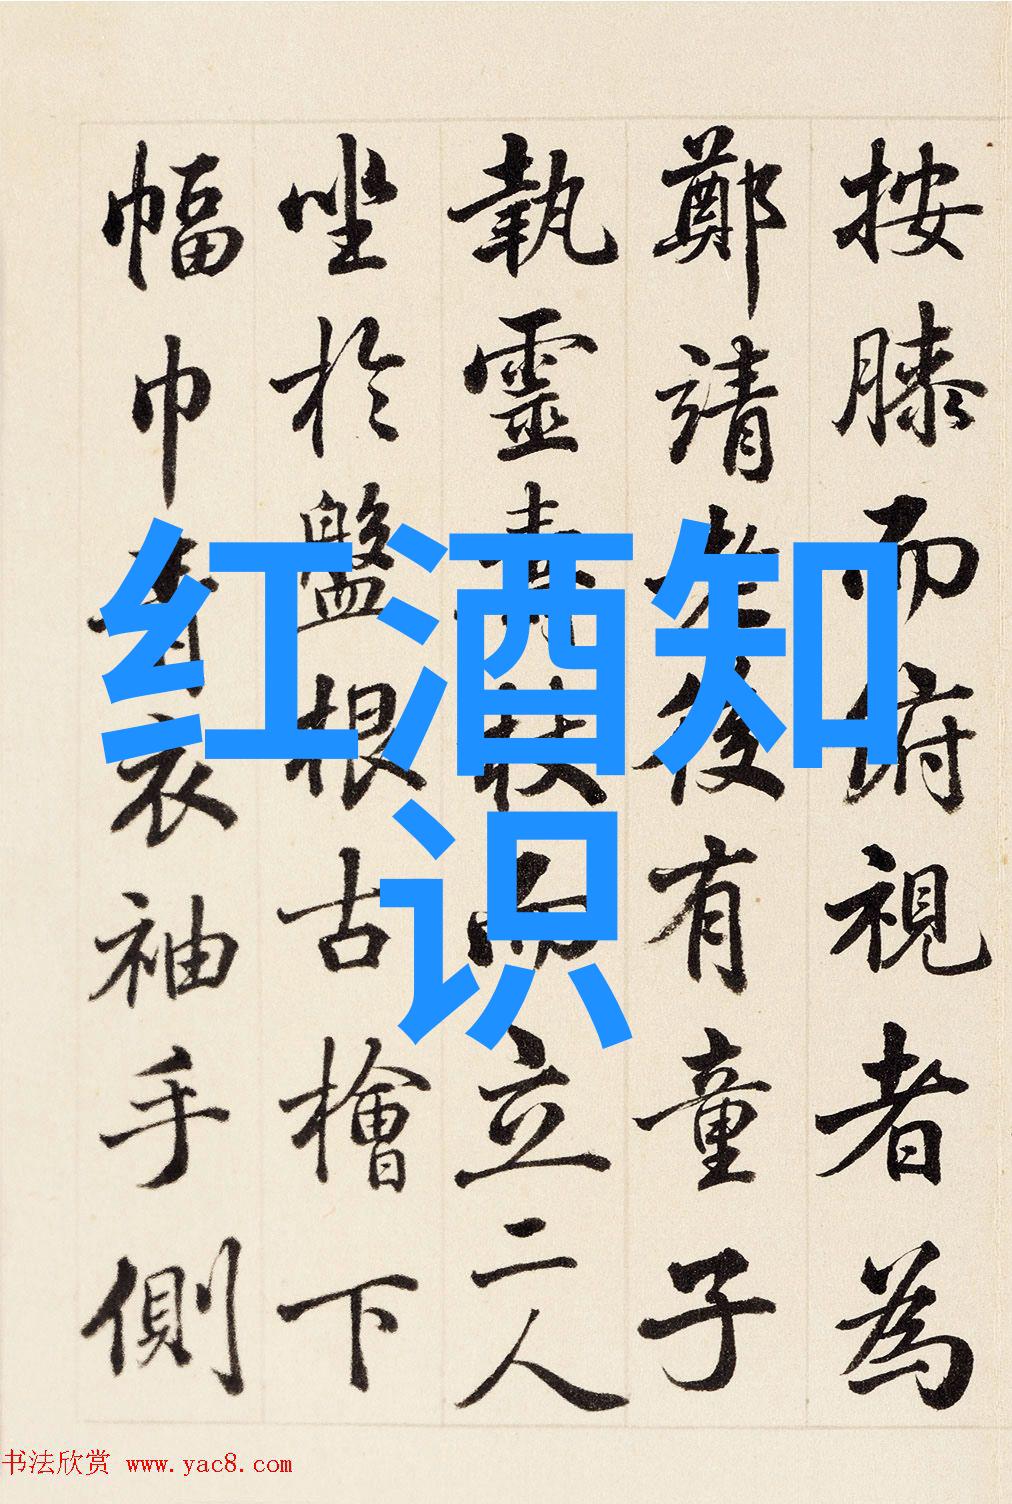 按膝而俯視者為
鄭靖老後有童子
執靈壽杖而立二人
坐於盤根古檜下
幅巾青衣袖手側
红酒知
识
书法欣赏 www.yac8.com